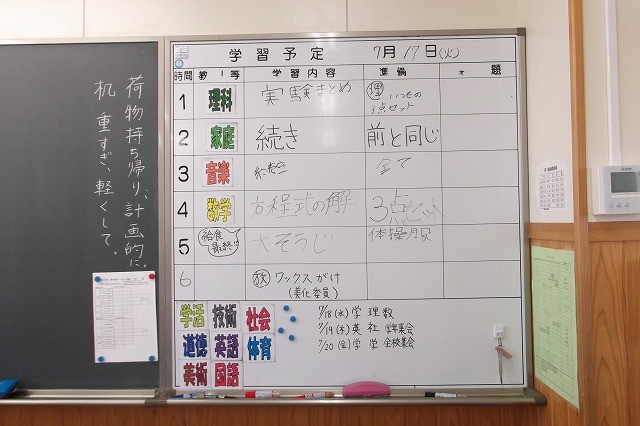 荷物持ち帰り、計画的に。
机 重すぎ、軽くして。
学習予定 7月17日(火)
時間 教 等 学習内容 準備 題
1 理科 実験まとめ 理 いつもの
3点セット
2 家庭 続き 前と同じ
3 音楽 全て
4 数学 方程式の解 3点セット
5 給食
最終り 大そうじ 体操服
6 放 ワックスがけ
(美化委員)
学活 技術 社会
道徳 英語 体育
美術 国語
7/18(水) 学 理 数
7/19(木) 英 社 学年集会
7/20(金) 学 学 全校集会